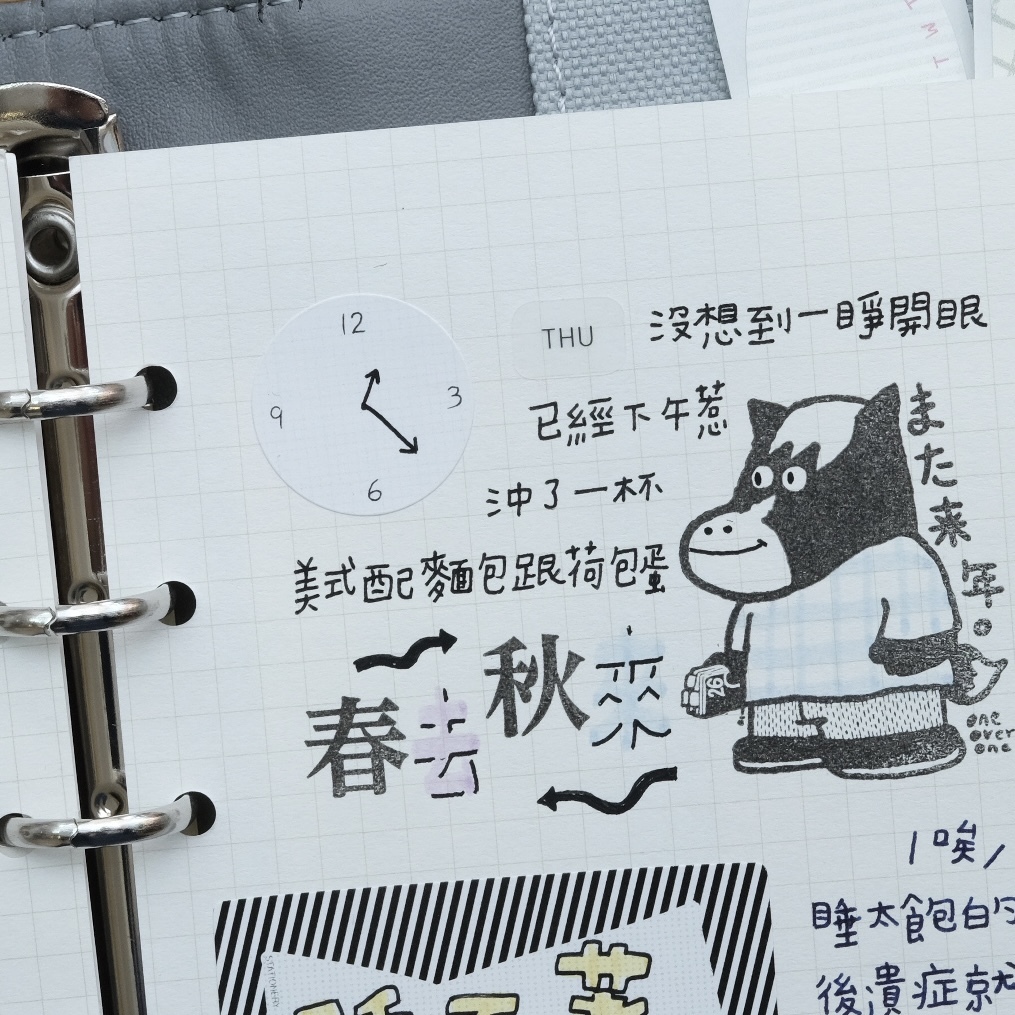 T W T
12
3
6
9
THU
沒想到一睜開眼
已經下午惹
沖了一杯
美式配麵包跟荷包蛋
また来年。
26
one
over
one
春去秋來
唉
睡太飽的
後潰症就